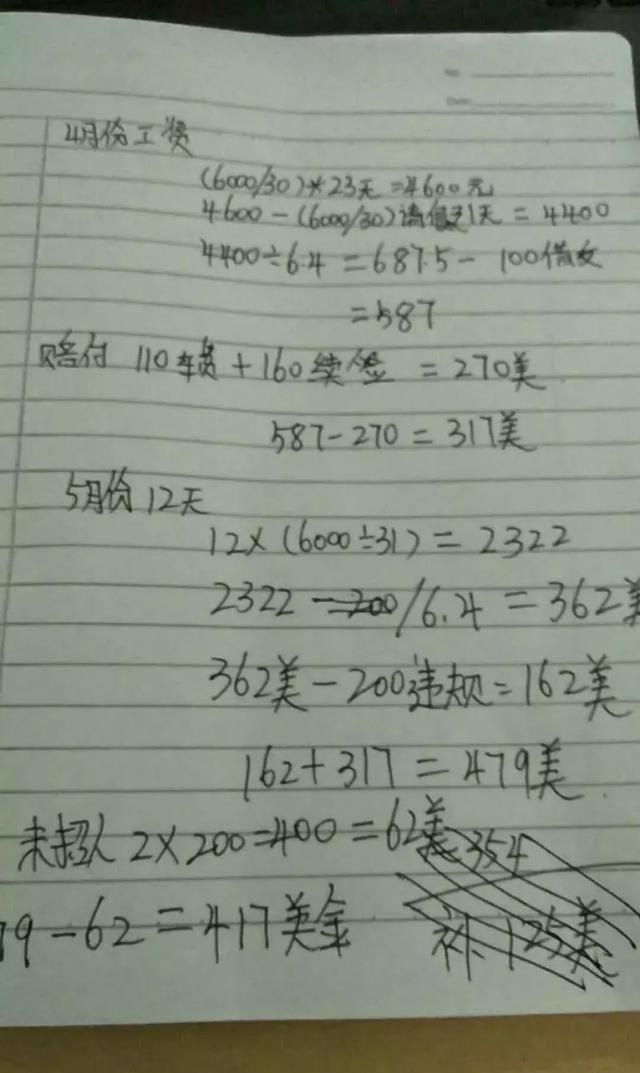 No:
Date:
4月份工资
(6000/30)*23天=4600元
4600-(6000/30)请假1天=4400
4400÷6.4=687.5-100借支
=587
赔付 110车费+160续签=270美
587-270=317美
5月份12天
12×(6000÷31)=2322
2322-200/6.4=362美
362美-200违规=162美
162+317=479美
未超人 2×200=400=62美 354
79-62=417美金 补125美